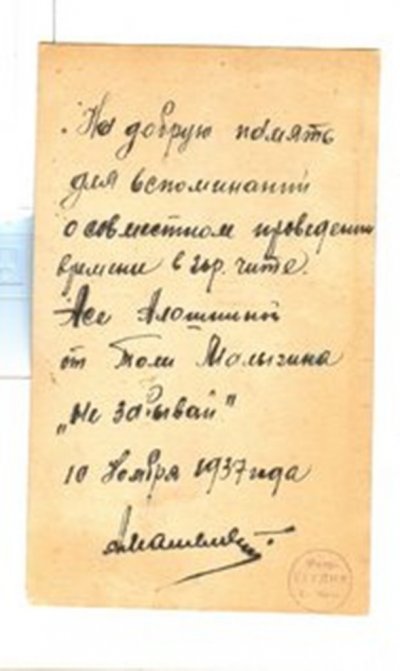 На добрую память
для вспоминаний
о совместном проведении
времени в гор. Чите.
Асе Алошиной
от Толи Малыгина
„Не забывай"
10 Ноября 1937 года
Фото-
СТУДИЯ